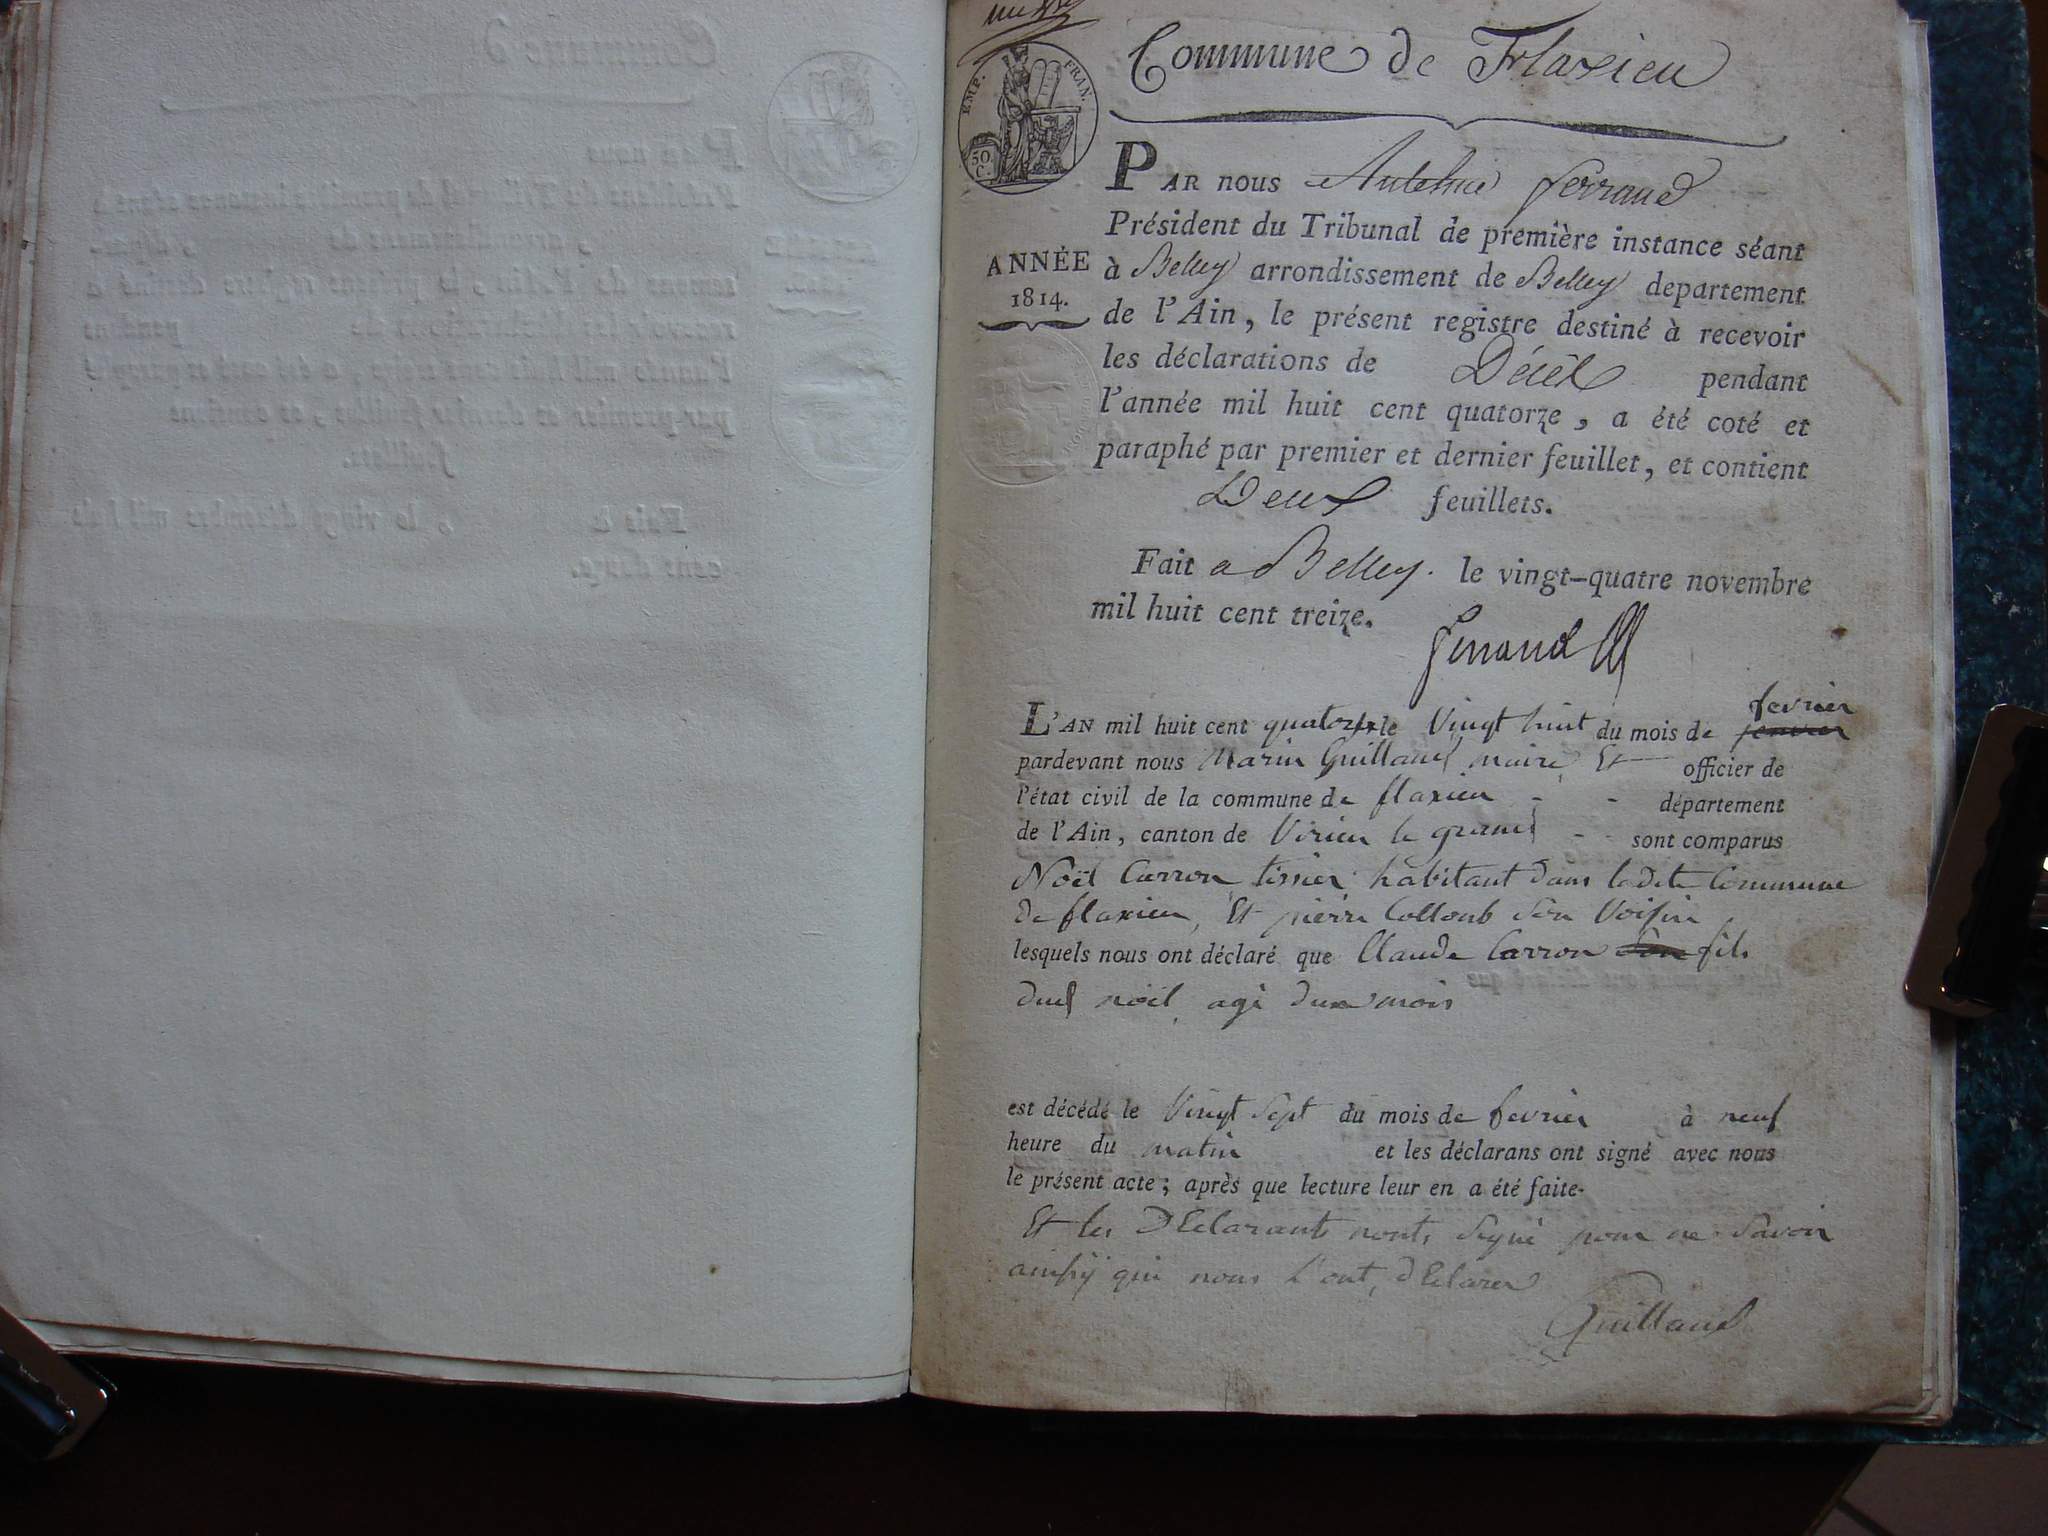 Commune de Flaxieu
EMP. FRAN.
50 C.
PAR NOUS Antelme ferrand
Président du Tribunal de première instance séant
ANNÉE
1814.
à Belley arrondissement de Belley departement
de l'Ain, le présent registre destiné à recevoir
les déclarations de Décès pendant
l'année mil huit cent quatorze, a été coté et
paraphé par premier et dernier feuillet, et contient
Deux feuillets.
Fait a Belley. le vingt-quatre novembre
mil huit cent treize.
ferrand
fevrier
L'AN mil huit cent quatorze le Vingt huit du mois de janvier
pardevant nous Marin Guilland maire Et officier de
l'état civil de la commune de flaxieu - - département
de l'Ain, canton de Virieu le grand - - sont comparus
Noël Carron tissier habitant dans ladite Commune
de flaxieu, Et pierre Colloub son Voisin
lesquels nous ont déclaré que Claude Carron son fils
dud noël, agé de mois
est décédé le Vingt Sept du mois de fevrier à neuf
heure du matin et les déclarans ont signé avec nous
le présent acte; après que lecture leur en a été faite.
Et les DEclarants nonts Signé pour ne Savoir
ainsÿ qui nous L'ont, dEclarer
Guilland